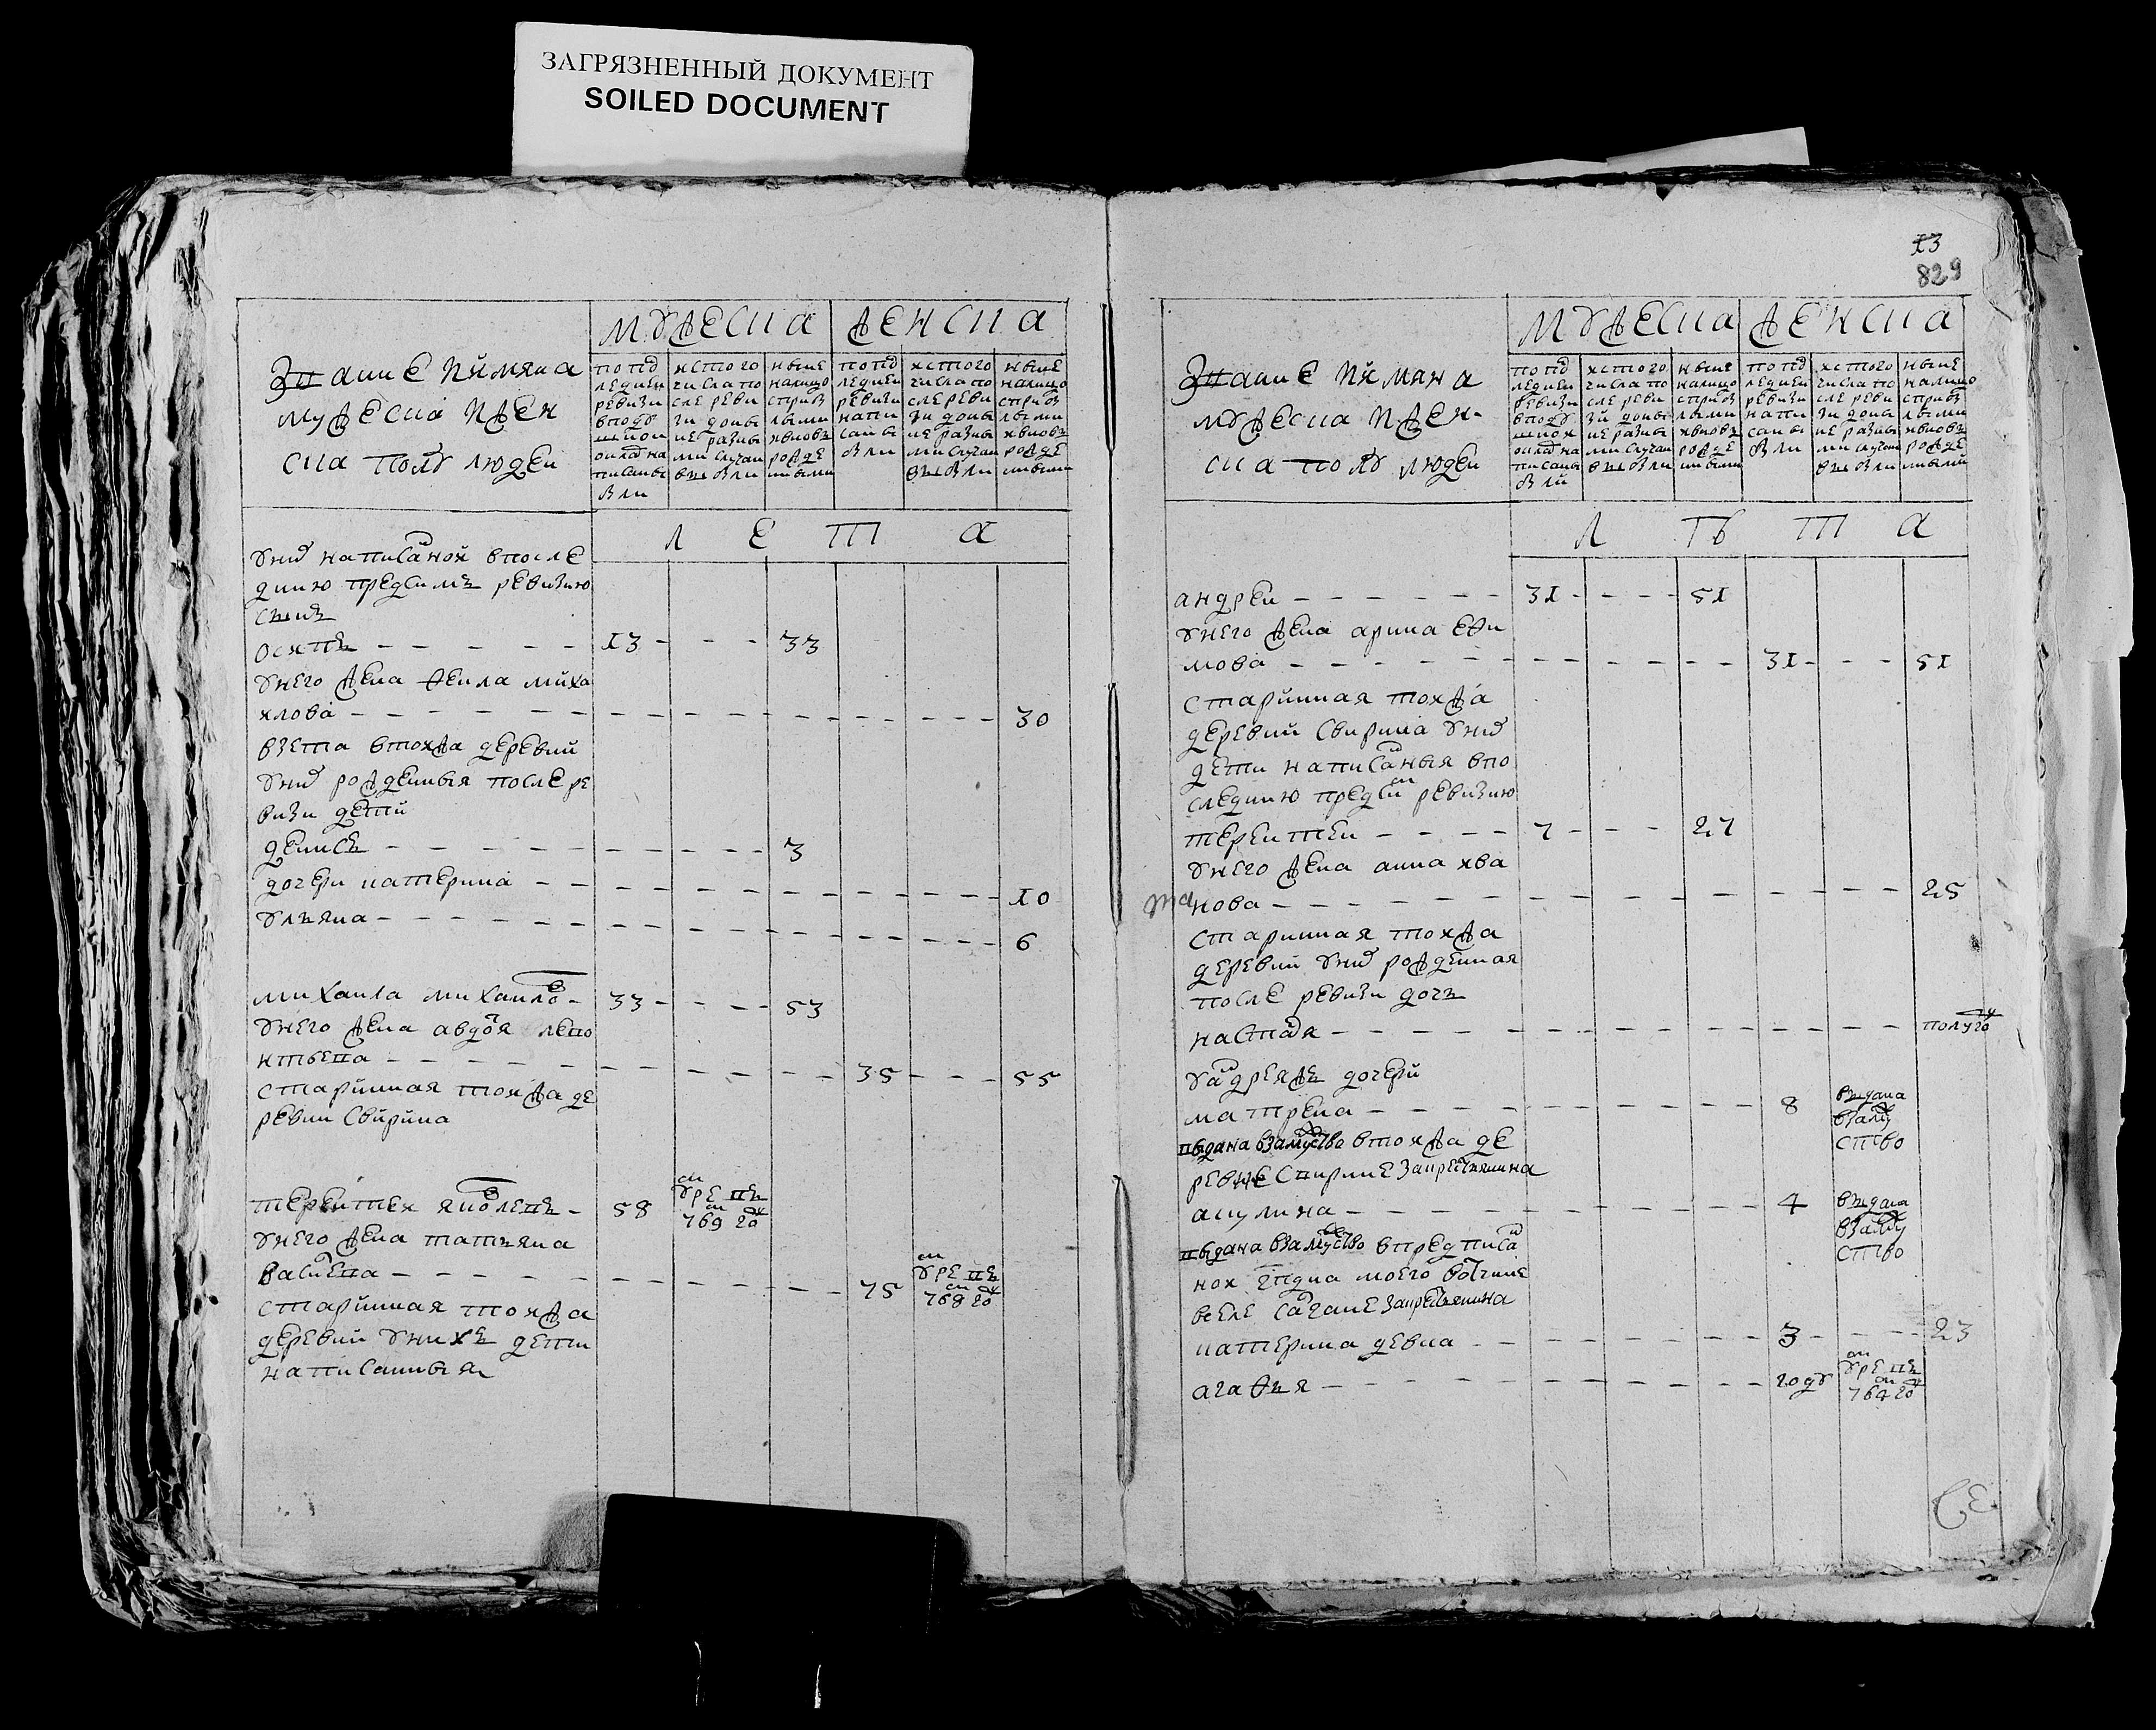 ЗАГРЯЗНЕННЫЙ ДОКУМЕНТ
SOILED DOCUMENT
Звание и имяна
мужеска и жен
ска полу людеи
мужеска женска
по пе
ледней
ревизи
в поду
шной
оклад на
писаны
были
ис того
числа по
сле реви
зи доны
не разны
ми случаи
выбыли
ныне
налицо
с приб
лыми
и вновь
рожде
нными
по пе
ледней
ревизи
напи
саны
были
ис того
числа по
сле реви
зи доны
не разны
ми случаи
выбыли
ныне
налицо
с приб
лыми
и вновь
рожде
нными
л е т а
у них написаной в после
днию пред сим ревизию
сынъ
осипъ 13 33
у него жена фекла миха
илова 30
взета в тои жа деревни
у них рожденныя после ре
визи дети
денисъ 3
дочери катерина 10
ульяна 6
михаила михаилов 33 53
у него жена авдотя лено
нтьева 35 55
старинная тои жа де
ревни Свирина
терентеи яковлевъ 58 умре въ 769 го
у него жена татьяна
васильева 75 умре въ 768 го
старинная тои жа
деревни у нихъ дети
написанныя
13
829
Звание и имяна
мужеска и жен
ска полу людеи
мужеска женска
по пе
ледней
ревизи
в поду
шной
оклад на
писаны
были
ис того
числа по
сле реви
зи доны
не разны
ми случаи
выбыли
ныне
налицо
с приб
лыми
и вновь
рожде
нными
по пе
ледней
ревизи
напи
саны
были
ис того
числа по
сле реви
зи доны
не разны
ми случаи
выбыли
ныне
налицо
с приб
лыми
и вновь
рожде
нными
л ѣ т а
андреи 31 51
у него жена арина ефи
мова 31 51
старинная тои жа
деревни Свирина у них
дети написаныя в по
следнию пред сим ревизию
терентеи 7 27
у него жена анна ива
нова 25
старинная тои жа
деревни у них рожденная
после ревизи дочь
настася полуго
у андреяжъ дочери
матрена 8 выдана в замужство
выдана взамужство в тои жа де
ревне Свирине за крестьянина
акулина 4 выдана в замужство
выдана взамужство в предписа
нои гпдна моего вотчине
в селе за крестьянина
катерина девка 3 23
агафья году умре въ 764 го